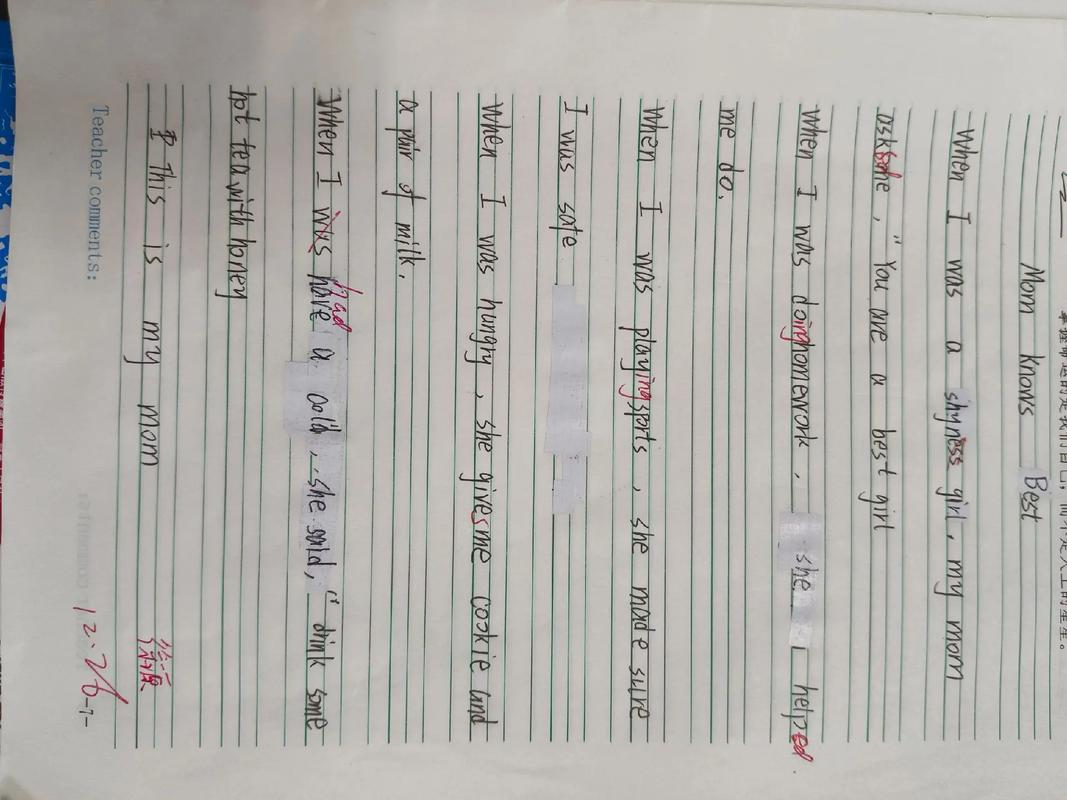 Mom knows Best
When I was a shyness girl, my mom
ask me, "You are a best girl
When I was doing homework, she helped
me do.
When I was playing sports, she made sure
I was safe
When I was hungry, she gives me cookie and
a pair of milk.
When I was have had a cold, she said, "drink some
hot tea with honey
This is my mom
Teacher comments:
12.26
-1-